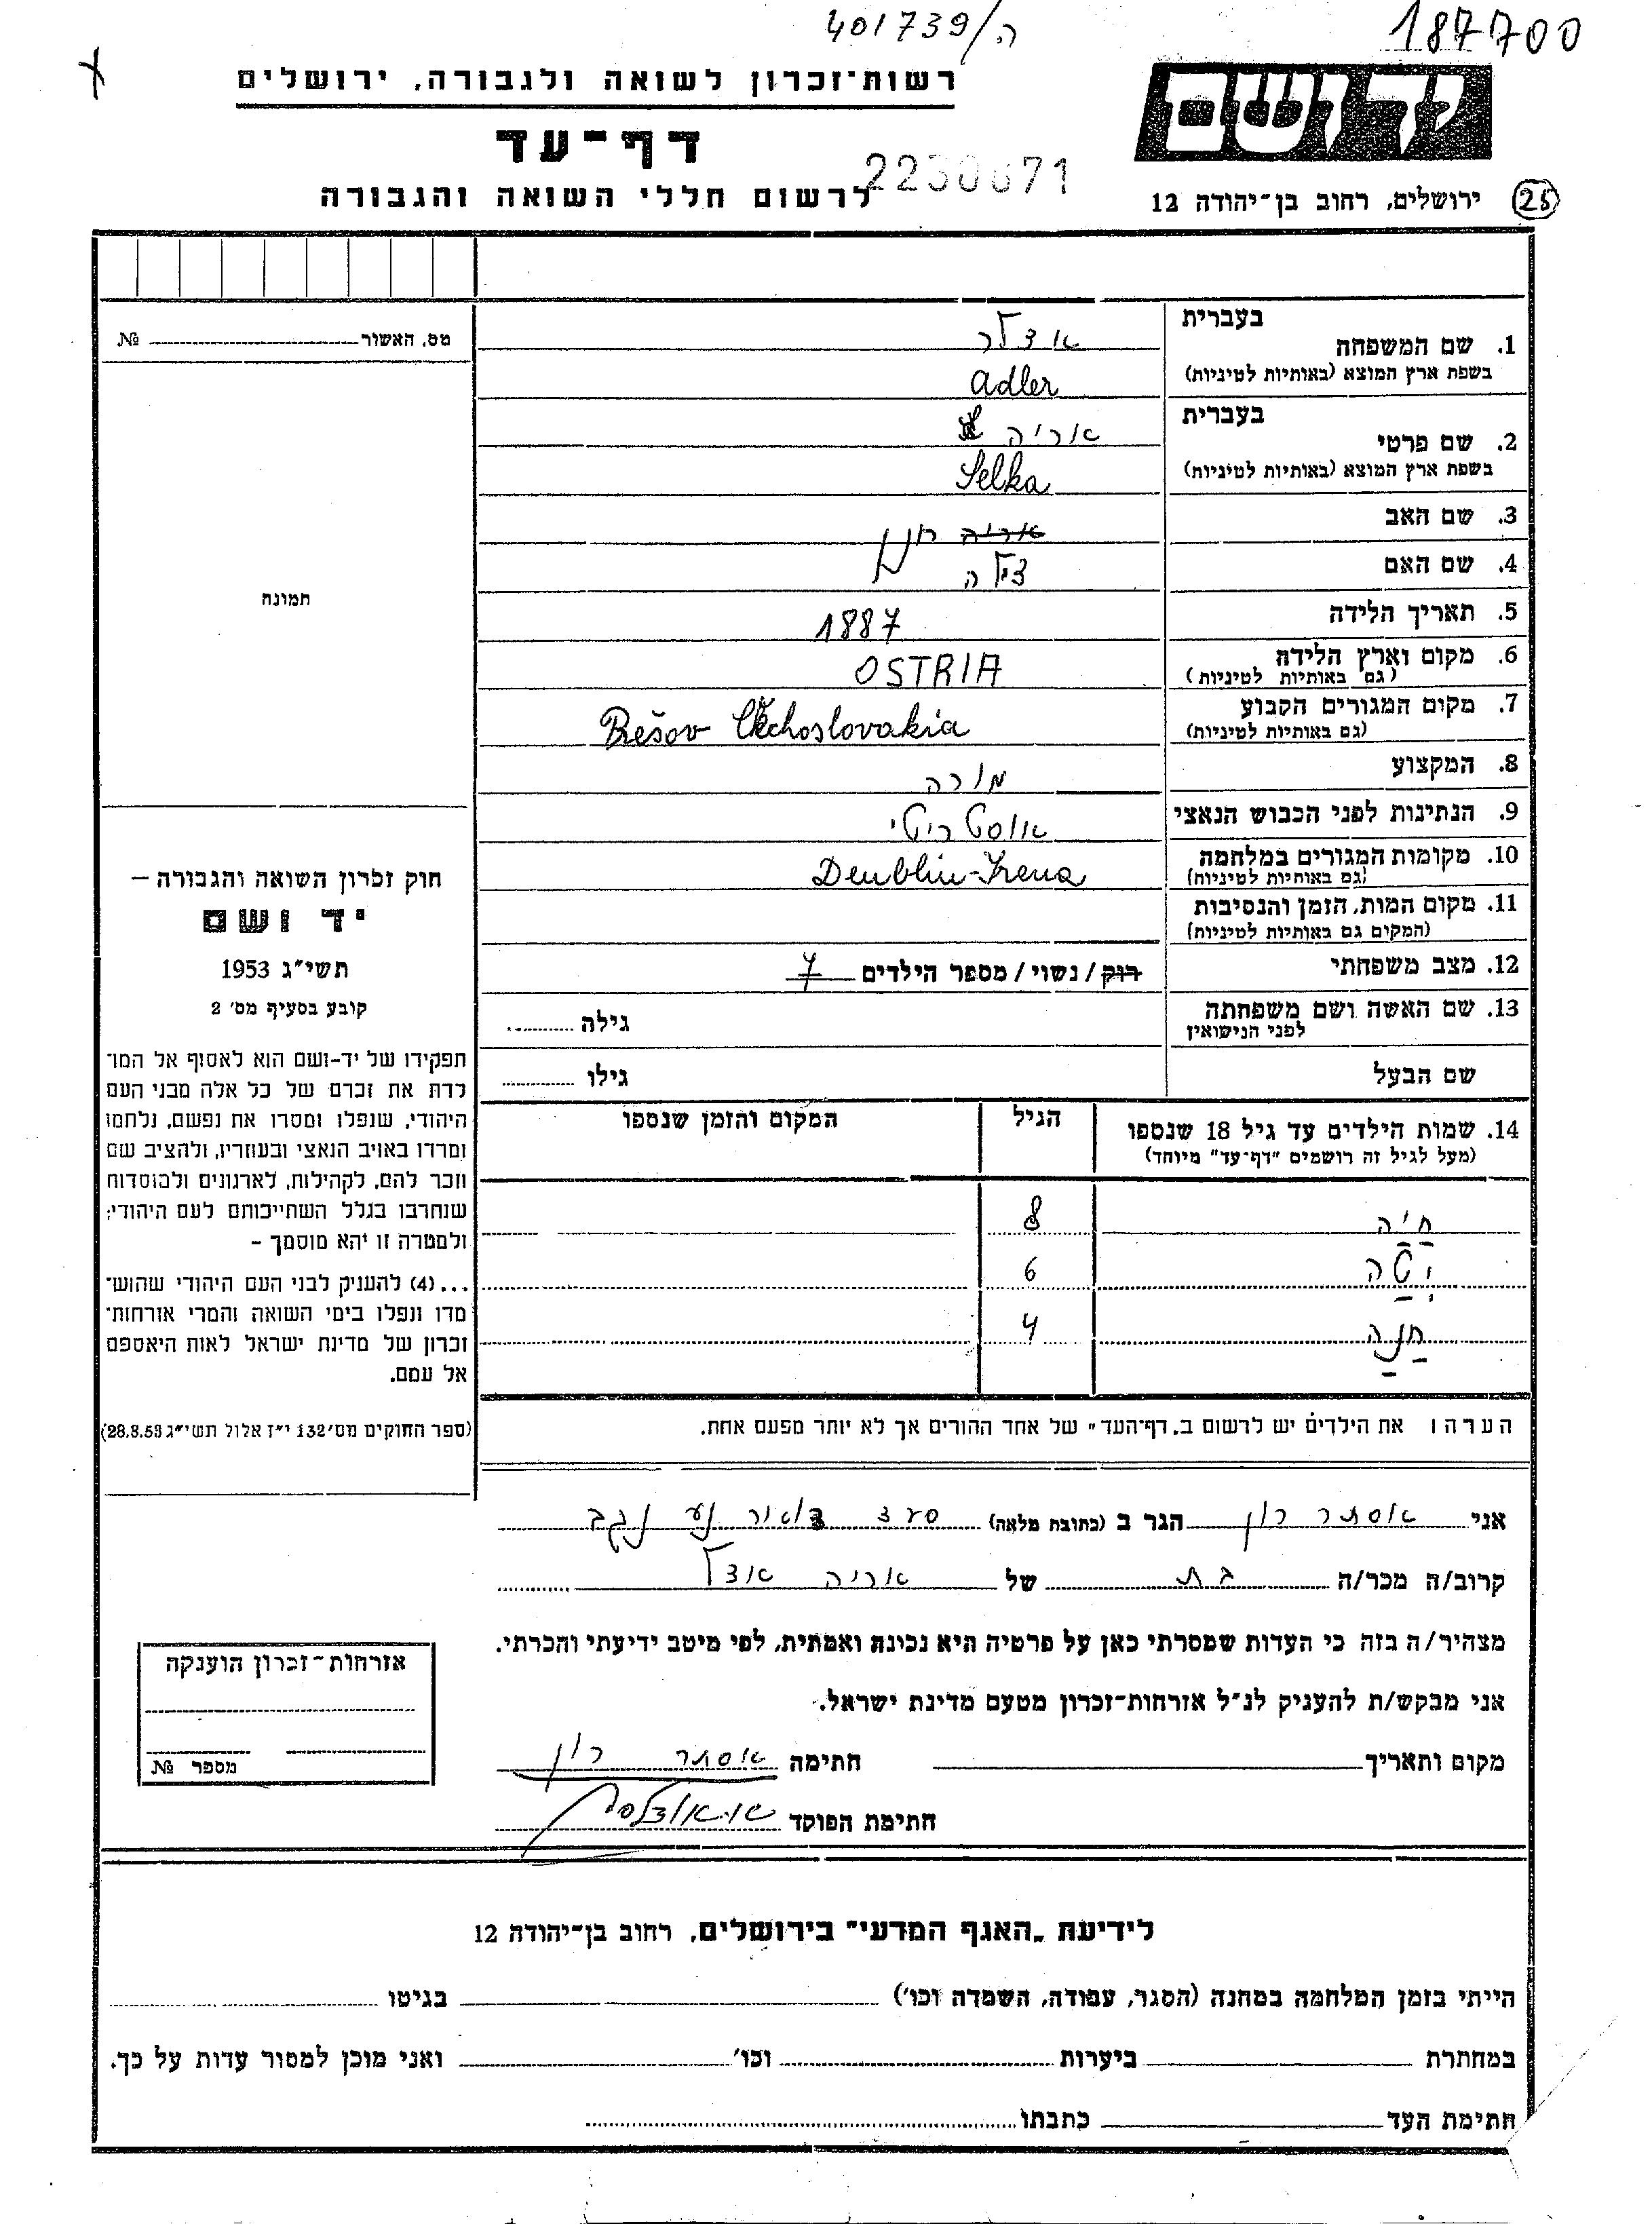 401739/ה.
187700
רשות־זכרון לשואה ולגבורה, ירושלים
יד ושם
דף־עד
2230671
לרשום חללי השואה והגבורה
ירושלים, רחוב בן־יהודה 12
25
בעברית
1. שם המשפחה אדלר
בשפת ארץ המוצא (באותיות לטיניות) Adler
בעברית
2. שם פרטי אריה
בשפת ארץ המוצא (באותיות לטיניות) Selka
3. שם האב אריה חנן
4. שם האם צילה
5. תאריך הלידה 1887
6. מקום וארץ הלידה OSTRIA
(גם באותיות לטיניות)
7. מקום המגורים הקבוע Prešov Čechoslovakia
(גם באותיות לטיניות)
8. המקצוע מורה
9. הנתינות לפני הכבוש הנאצי אוסטריטי
10. מקומות המגורים במלחמה Demblin-Irena
(גם באותיות לטיניות)
11. מקום המות, הזמן והנסיבות
(המקום גם באותיות לטיניות)
12. מצב משפחתי רוק / נשוי / מספר הילדים 7
13. שם האשה ושם משפחתה גילה
לפני הנישואין
שם הבעל גילו
14. שמות הילדים עד גיל 18 שנספו הגיל המקום והזמן שנספו
(מעל לגיל זה רושמים "דף־עד" מיוחד)
חיה 8
יטה 6
חנה 4
הערה ו את הילדים יש לרשום ב„דף־העד" של אחד ההורים אך לא יותר מפעם אחת.
מס. האשור № 
תמונה
חוק זכרון השואה והגבורה —
יד ושם
תשי"ג 1953
קובע בסעיף מס' 2
תפקידו של יד-ושם הוא לאסוף אל המו־
לדת את זכרם של כל אלה מבני העם
היהודי, שנפלו ומסרו את נפשם, נלחמו
ומרדו באויב הנאצי ובעוזריו, ולהציב שם
וזכר להם, לקהילות, לארגונים ולמוסדות
שנחרבו בגלל השתייכותם לעם היהודי;
ולמטרה זו יהא מוסמך —
...(4) להעניק לבני העם היהודי שהוש־
מדו ונפלו בימי השואה והמרי אזרחות־
זכרון של מדינת ישראל לאות היאספם
אל עמם.
(ספר החוקים מס' 132 י"ז אלול תשי"ג 28.8.53)
אני אסתר רון הגר ב (כתובת מלאה) סעד דואר נע נגב
קרוב/ה מכר/ה בת של אריה אדל
מצהיר/ה בזה כי העדות שמסרתי כאן על פרטיה היא נכונה ואמתית, לפי מיטב ידיעתי והכרתי.
אני מבקש/ת להעניק לנ"ל אזרחות־זכרון מטעם מדינת ישראל.
מקום ותאריך חתימה אסתר רון
חתימת הפוקד
אזרחות־זכרון הוענקה
מספר №
לידיעת „האגף המדעי" בירושלים, רחוב בן־יהודה 12
הייתי בזמן המלחמה במחנה (הסגר, עבודה, השמדה וכו') בגיטו
במחתרת ביערות וכו' ואני מוכן למסור עדות על כך.
חתימת העד כתבתו